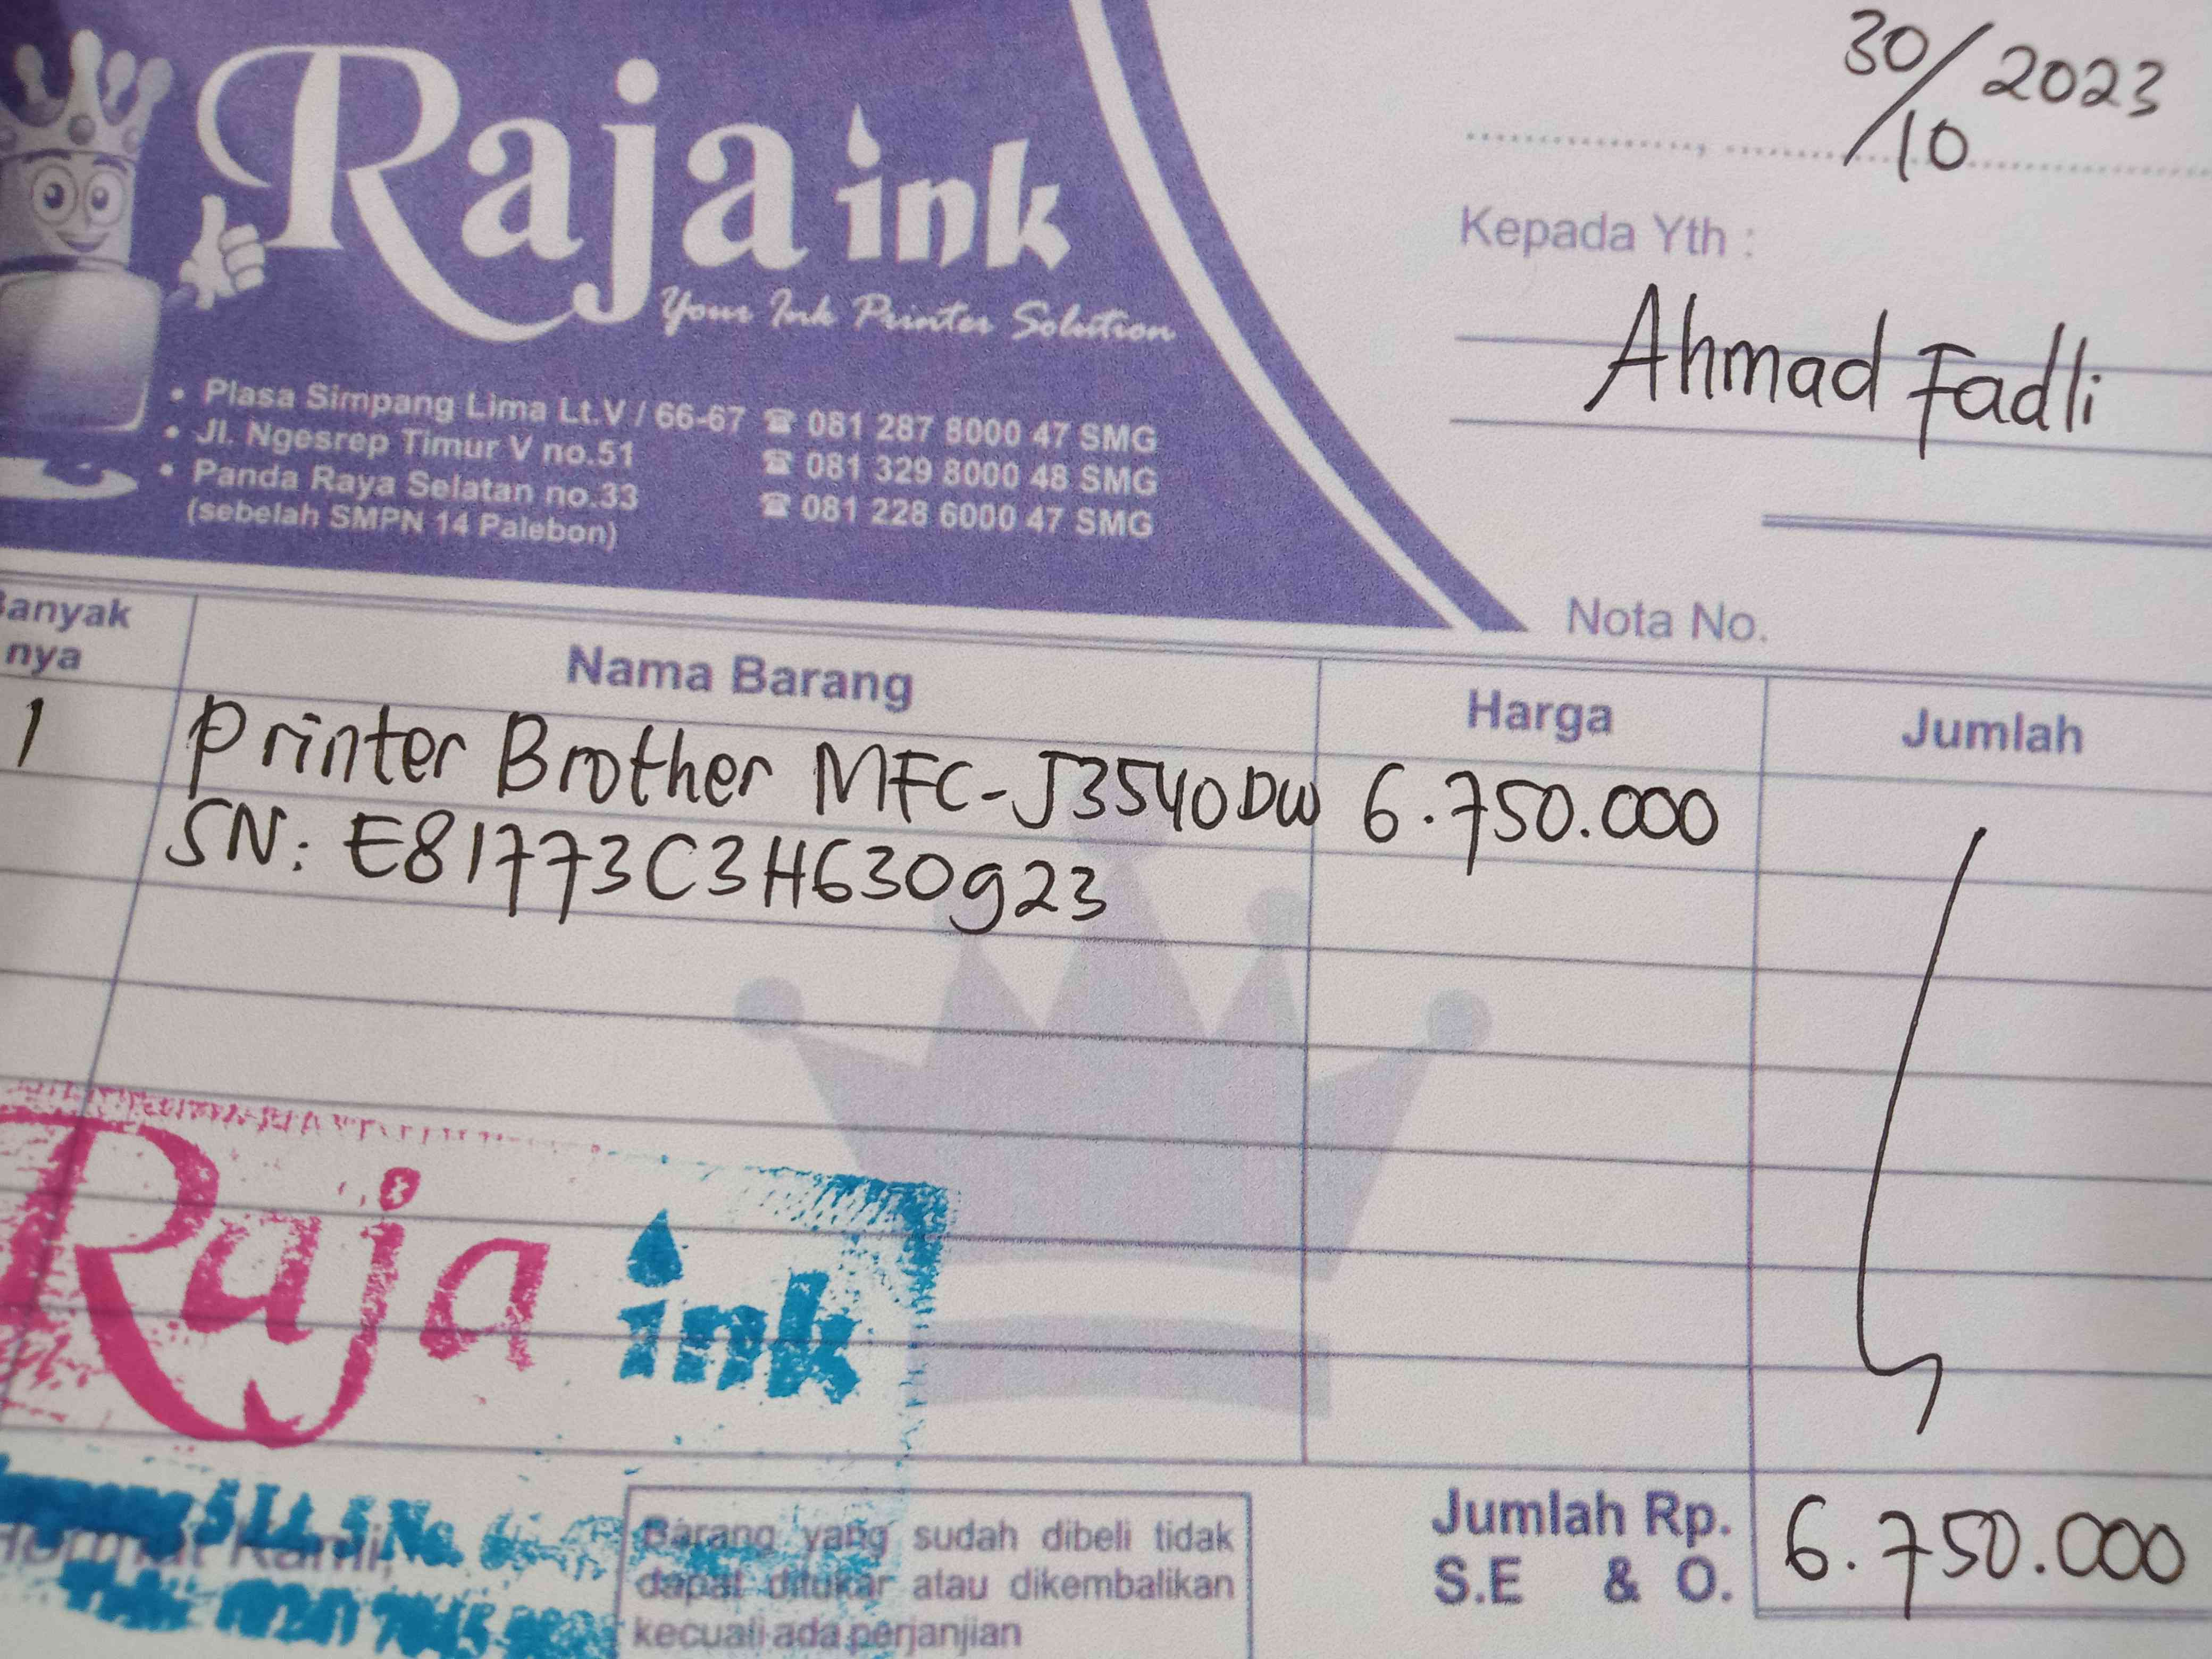 Raja ink
Your Ink Printer Solution
• Plasa Simpang Lima Lt.V / 66-67 ☎ 081 287 8000 47 SMG
• Jl. Ngesrep Timur V no.51 ☎ 081 329 8000 48 SMG
• Panda Raya Selatan no.33 ☎ 081 228 6000 47 SMG
(sebelah SMPN 14 Palebon)
30/10 2023
Kepada Yth :
Ahmad Fadli
Nota No.
Banyak nya Nama Barang Harga Jumlah
1 Printer Brother MFC-J3540DW 6.750.000
SN: E81773C3H630g23
Raja ink
5 Lt. 5 No.
Hormat Kami,
Barang yang sudah dibeli tidak
dapat ditukar atau dikembalikan
kecuali ada perjanjian
Jumlah Rp. 6.750.000
S.E & O.